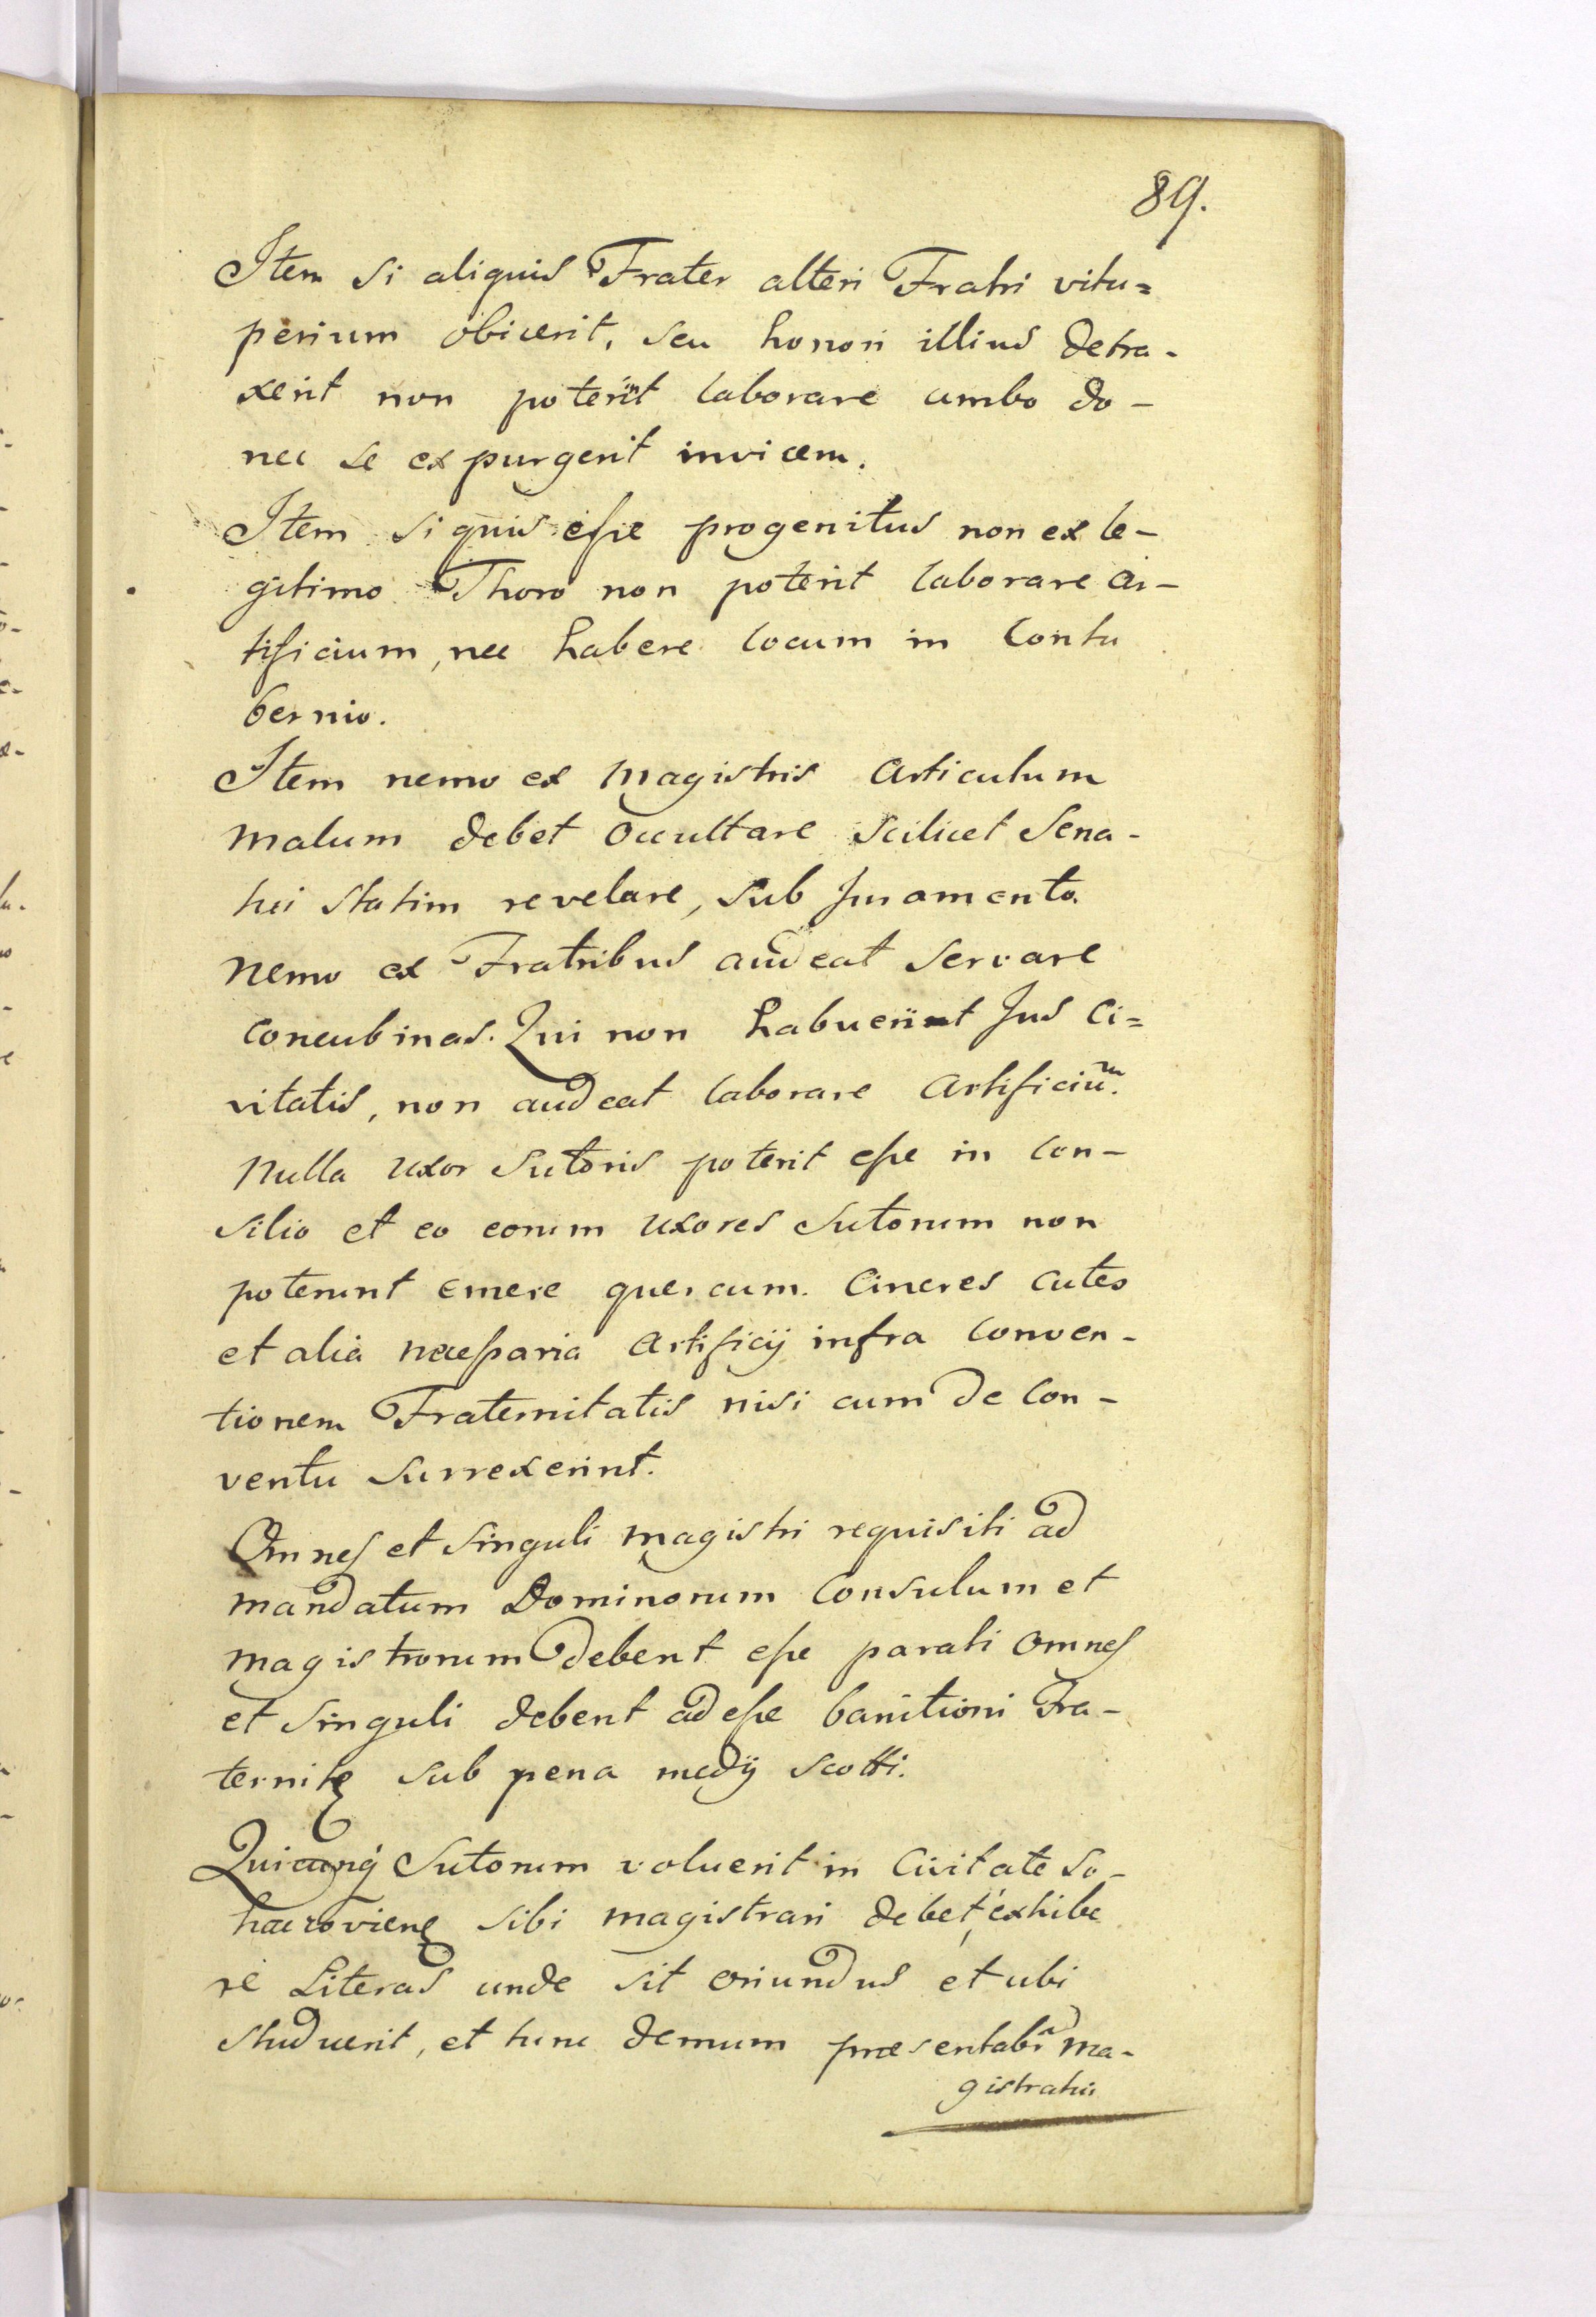 89.
Item si aliquis Frater alteri Fratri vitu=
perium obicerit, seu honori illius detra-
xerit non poterit laborare ambo do-
nec se expurgerit invicem.
Item si quis eſse progenitus non ex le-
gitimo Thoro non poterit laborare ar-
tificium, nec habere locum in Contu
bernio.
Item nemo ex Magistris Articulum
Malum debet occultare scilicet Sena-
tui statim revelare, sub Juramento.
Nemo ex Fratribus audeat servare
Concubinas. Qui non habuerint Jus Ci=
vitatis, non audeat laborare Artificiũm.
Nulla Uxor Sutoris poterit eſse in Con-
silio et eo eorum Uxores Sutorum non
poterunt emere quercum. Cineres Cutes
et alia neceſsaria Artificij infra Conven-
tionem Fraternitatis nisi cum de Con-
ventu surrexerint.
Omnes et singuli Magistri requisiti ad
mandatum Dominorum Consulum et
Magistrorum debent eſse parati Omnes
et singuli debent adeſse banitioni Fra-
ternitę sub pena medij scotti.
Quicunq́ Sutorum voluerit in Civitate So-
haczovienę sibi magistrari debet, exhibe
re Literas unde sit oriundus et ubi
studuerit, et tunc demum præsentabr̃ Ma-
gistratui